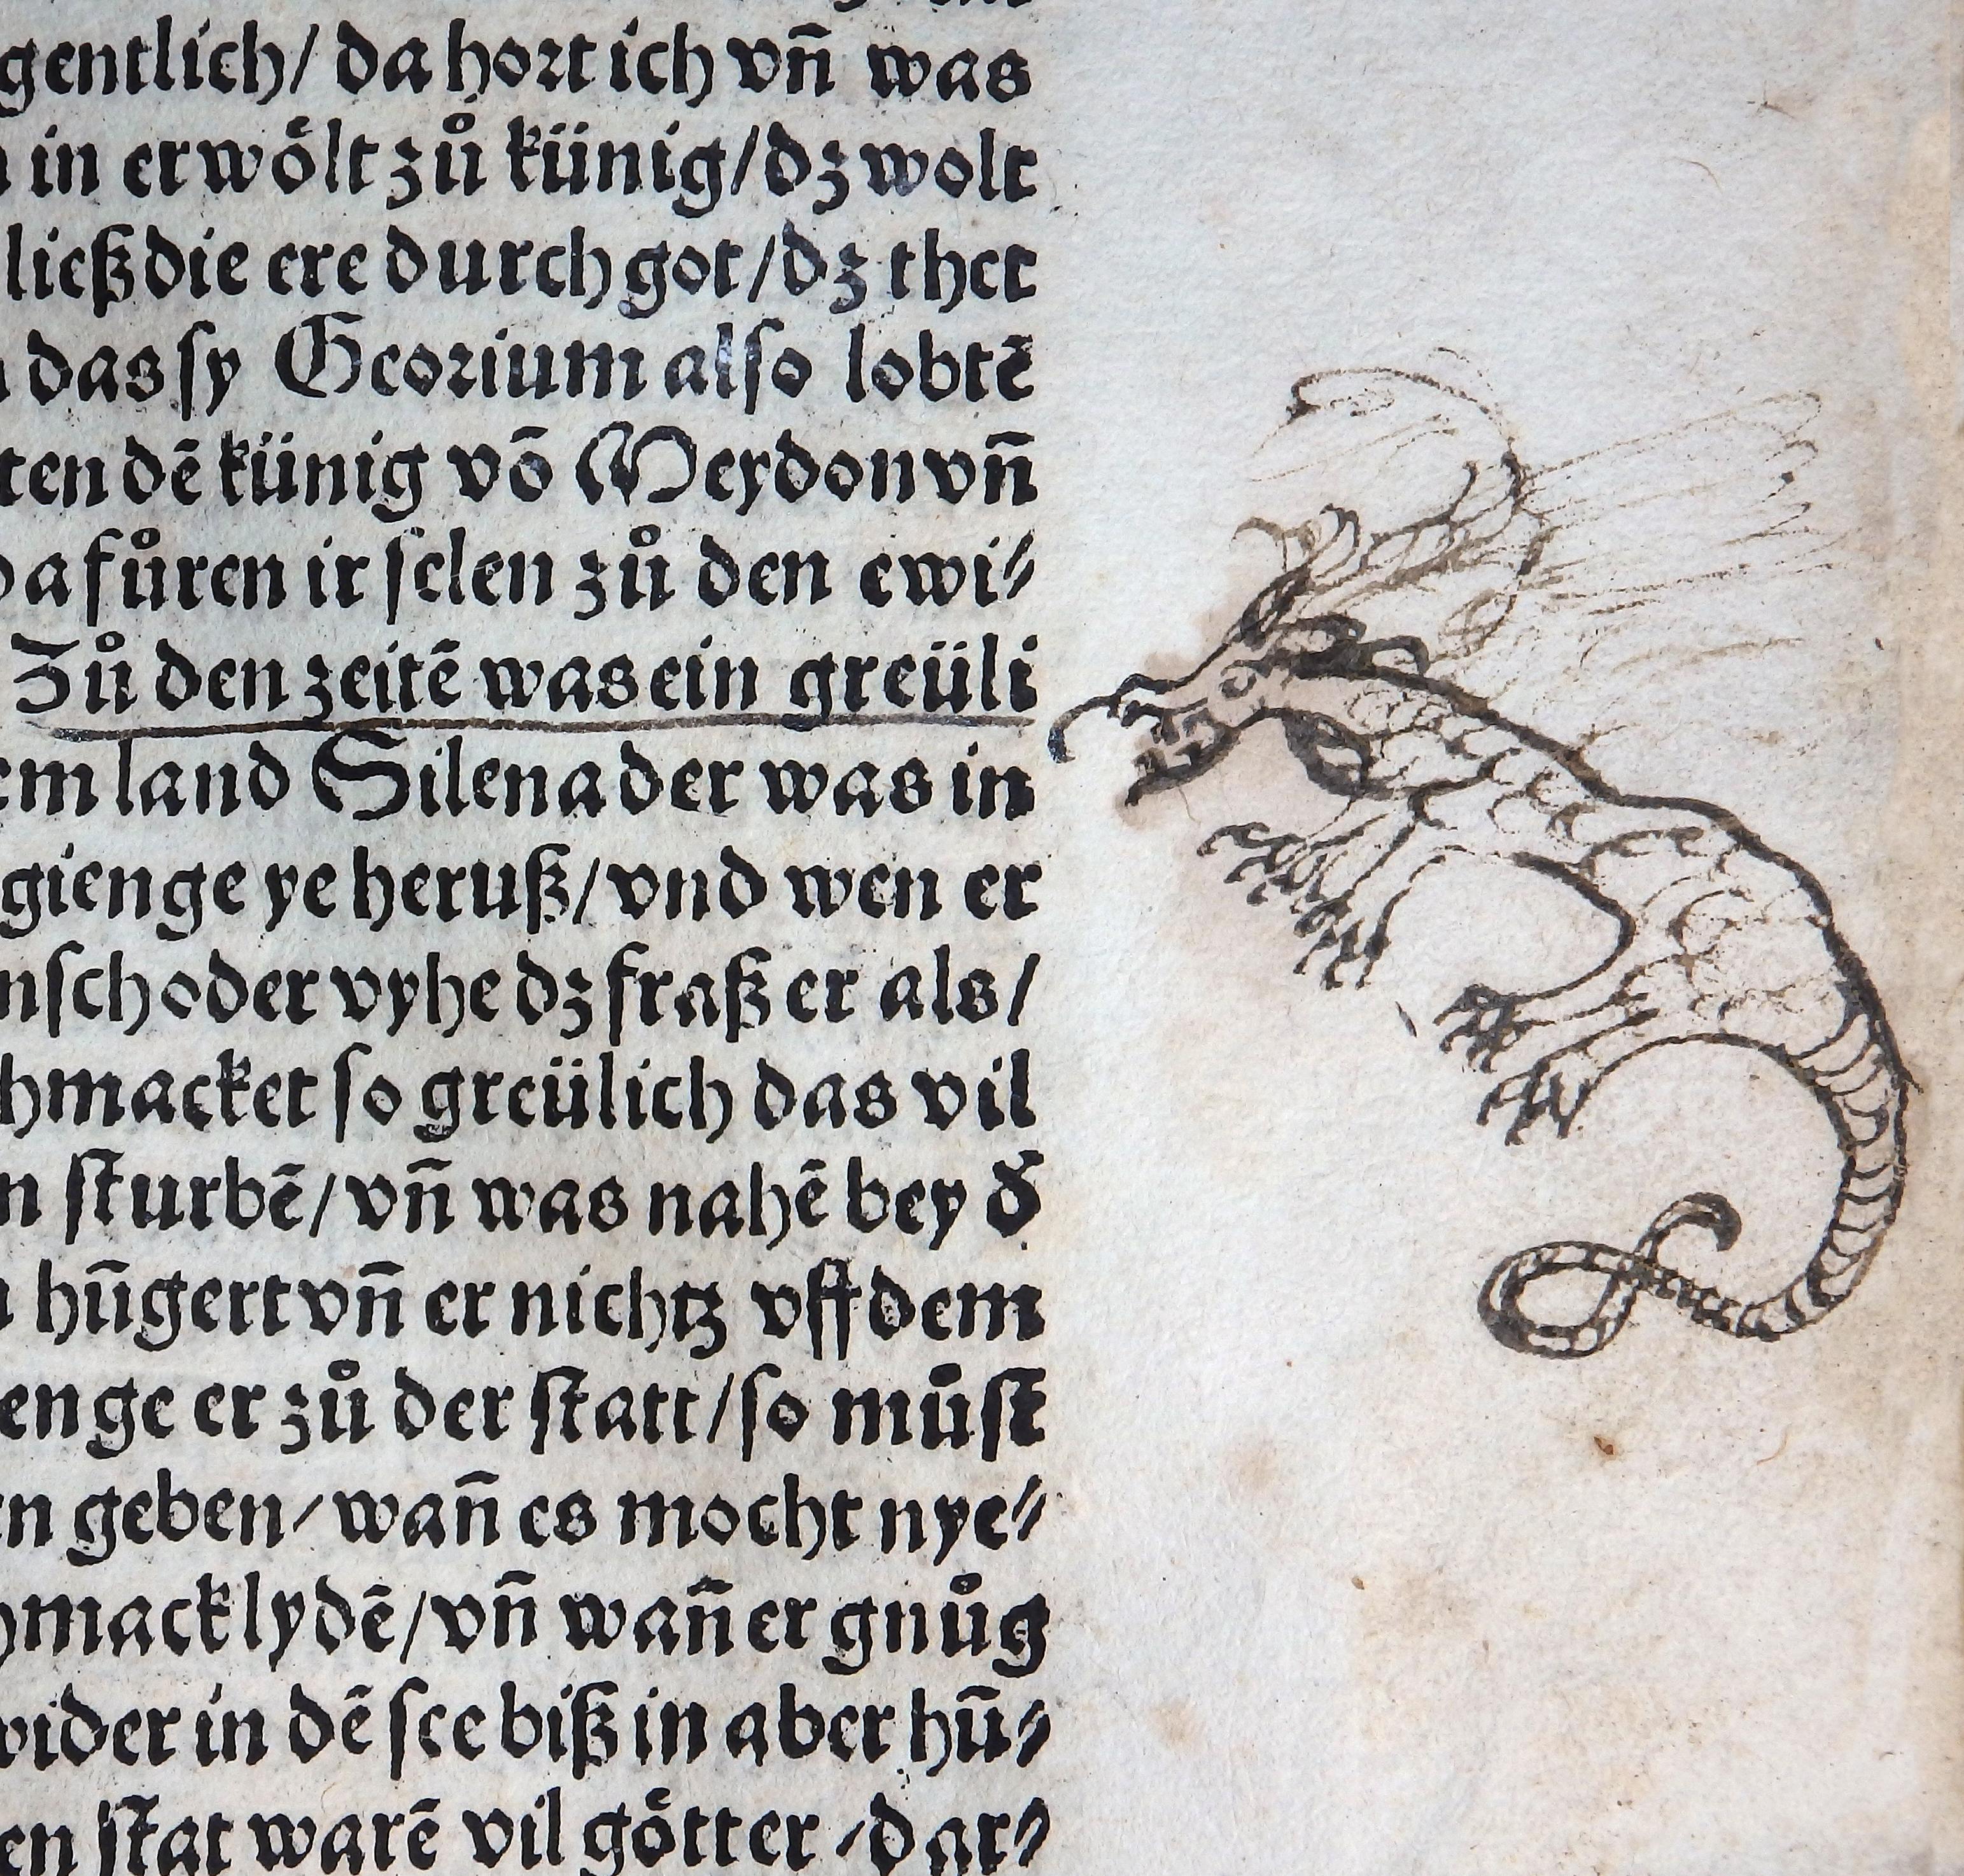 gentlich/ da hort ich vn̄ was
in erwoͤlt zuͦ künig/dz wolt
ließ die ere durch got/dz thet
das sy Georium also lobtē
ten dē künig vō Meydon vn̄
da fuͦren ir selen zuͦ den ewi⸗
Zuͦ den zeitē was ein greüli
em land Silena der was in
gienge ye heruß/vnd wen er
nsch oder vyhe dz fraß er als/
hmacket so greülich das vil
n sturbē/vn̄ was nahē bey d̕
hūgert vn̄ er nichtz vff dem
enge er zuͦ der statt/so muͦst
en geben/wan̄ es mocht nye⸗
hmack lydē/vn̄ wan̄ er gnuͦg
wider in dē see biß in aber hū⸗
en stat warē vil goͤtter/dar⸗